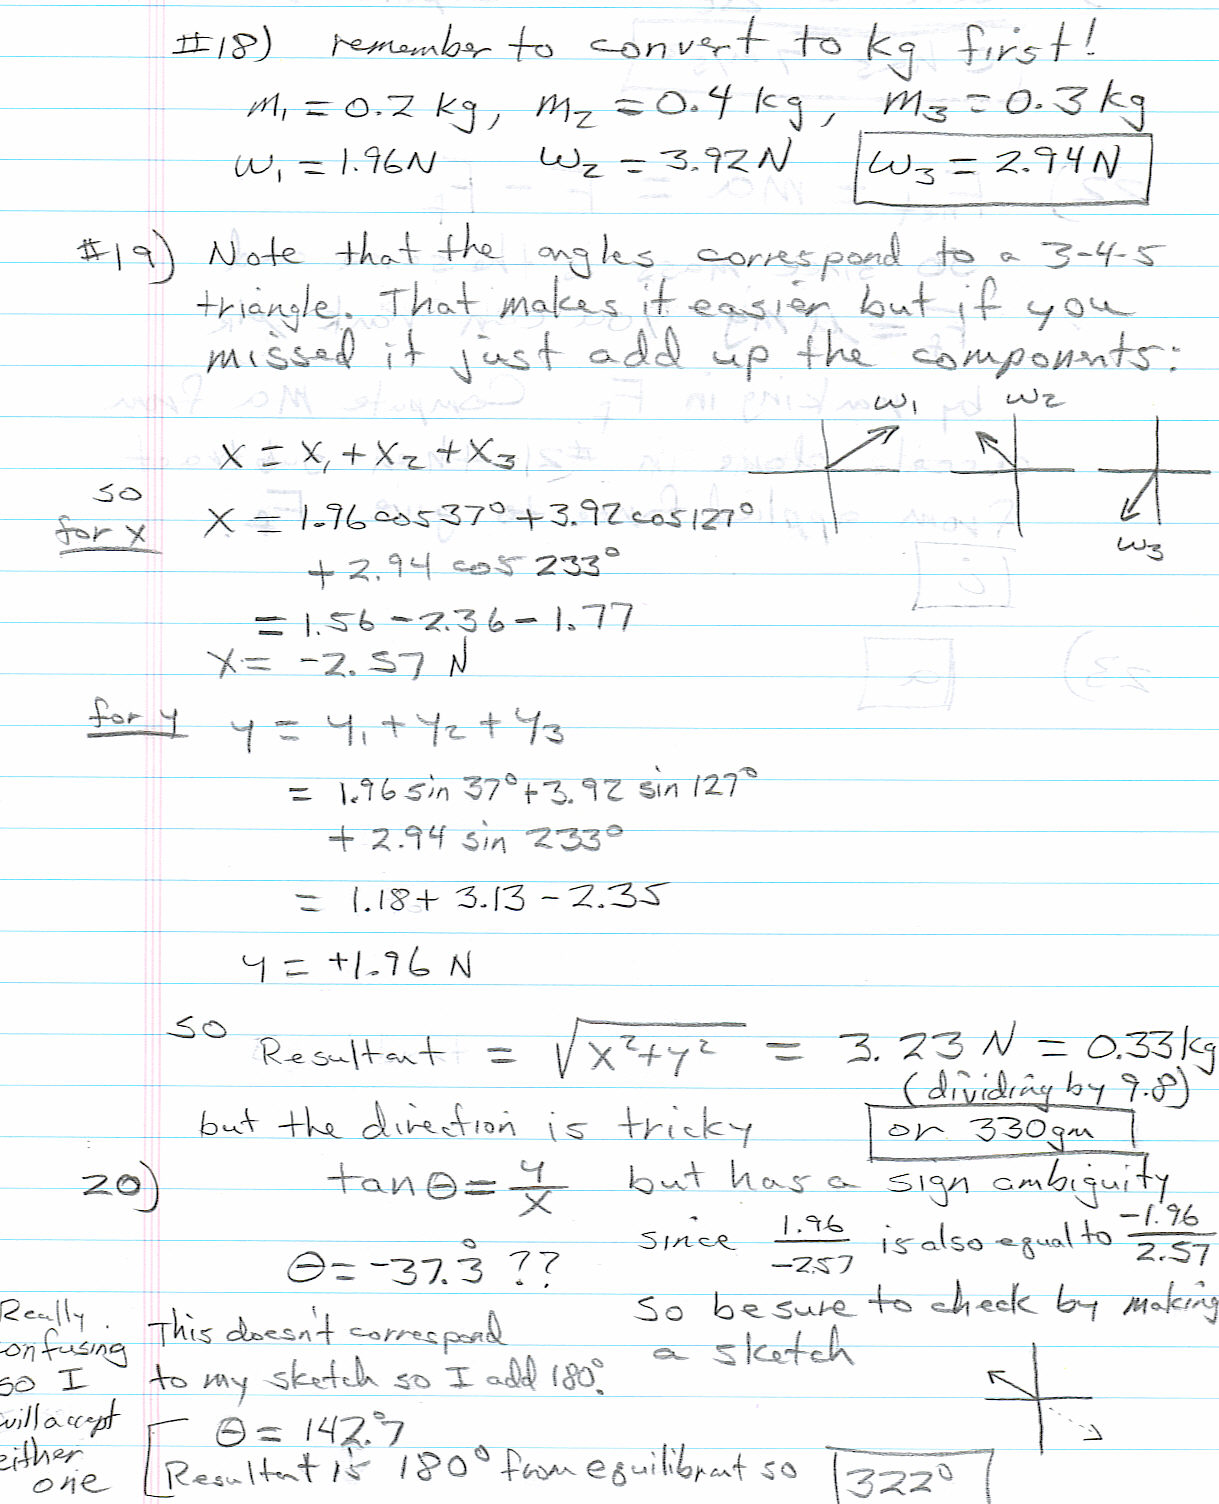 #18) remember to convert to kg first!
m₁ = 0.2 kg, m₂ = 0.4 kg, m₃ = 0.3 kg
w₁ = 1.96N w₂ = 3.92N w₃ = 2.94N
#19) Note that the angles correspond to a 3-4-5
triangle. That makes it easier but if you
missed it just add up the components:
w₁ w₂
x = x₁ + x₂ + x₃
so
for x x = 1.96 cos 37° + 3.92 cos 127°
w₃
+ 2.94 cos 233°
= 1.56 - 2.36 - 1.77
x = -2.57 N
for y y = y₁ + y₂ + y₃
= 1.96 sin 37° + 3.92 sin 127°
+ 2.94 sin 233°
= 1.18 + 3.13 - 2.35
y = +1.96 N
so Resultant = √x²+y² = 3.23 N = 0.33kg
(dividing by 9.8)
but the direction is tricky or 330gm
20) tan θ = y/x but has a sign ambiguity
since 1.96/-2.57 is also equal to -1.96/2.57
θ = -37.3° ??
so be sure to check by making
a sketch
This doesn't correspond
to my sketch so I add 180°.
θ = 142.7°
Resultant is 180° from equilibrant so 322°
Really
onfusing
so I
will accept
either
one